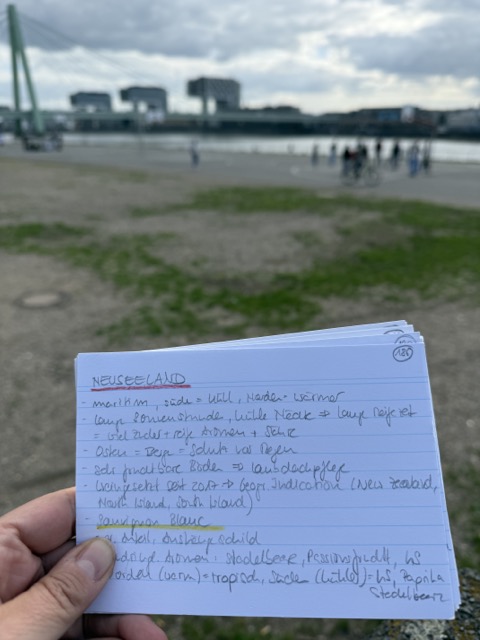 126
NEUSEELAND
- maritim, Süden = kühl, Norden = wärmer
- lange Sonnenstunden, kühle Nächte => lange Reifezeit
= viel Zucker + reife Aromen + Säure
- Osten = Berge = Schutz vor Regen
- sehr fruchtbare Böden => Laubdachpflege
- Weingesetz seit 2017 => Geogr. Indication (New Zealand,
North Island, South Island)
- Sauvignon Blanc
Anteil, Aushängeschild
Aromen: Stachelbeere, Passionsfrucht,
Norden (warm) = tropisch, Süden (kühler) = Paprika
Stachelbeere